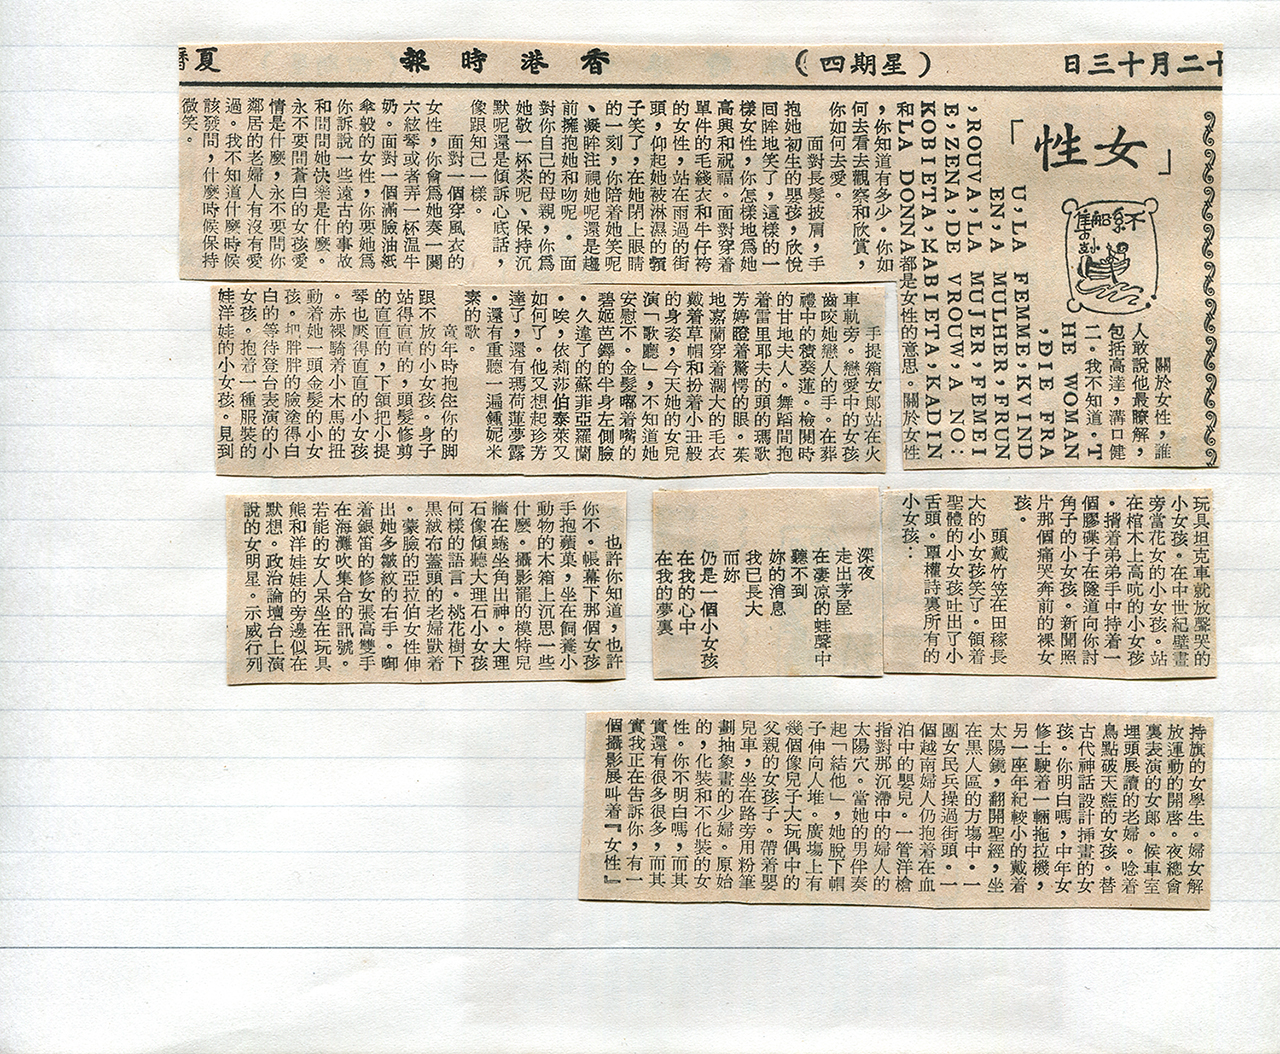 十二月十三日
（星期四）
香港時報
夏曆
「女性」
不系舟集
關於女性，誰
人敢說他最瞭解，
包括高達，溝口健
二。我不知道。T
HE WOMAN
，DIE FRA
U，LA FEMME，KVIND
EN，A MULHER，FRUN
，ROUVA，LA MUJER，FEMEI
E，ZENA，DE VROUW，A NO：
KOBIETA，MABIETA，KADIN
和LA DONNA都是女性的意思。關於女性
，你知道有多少。你如
何去看去觀察和欣賞，
你如何去愛。
面對長髮披肩，手
抱她初生的嬰孩，欣悅
囘眸地笑了，這樣的一
樣女性，你怎樣地爲她
高興和祝福。面對穿着
單件的毛綫衣和牛仔袴
的女性，站在雨過的街
頭，仰起她被淋濕的頸
子笑了，在她閉上眼睛
的一刻，你陪着她笑呢
、凝眸注視她呢還是趨
前擁抱她和吻呢。面
對你自己的母親，你爲
她敬一杯茶呢、保持沉
默呢還是傾訴心底話，
像跟知己一樣。
面對一個穿風衣的
女性，你會爲她奏一闋
六絃琴或者弄一杯温牛
奶。面對一個滿臉油紙
傘般的女性，你要她爲
你訴說一些遠古的事故
和問問她快樂是什麼。
永不要問蒼白的女孩愛
情是什麼，永不要問你
鄰居的老婦人有沒有愛
過。我不知道什麼時候
該發問，什麼時候保持
微笑。
手提箱女郎站在火
車軌旁。戀愛中的女孩
齒咬她戀人的手。在葬
禮中的積葵蓮。檢閱時
的甘地夫人。舞蹈間抱
着雷里耶夫的頭的瑪歌
芳婷瞪着驚愕的眼。茱
地嘉蘭穿着濶大的毛衣
戴着草帽和扮着小丑般
的身姿，今天她的女兒
演「歌廳」，不知道她
安慰不。金髮嘟着嘴的
碧姬芭鐸的半身左側臉
。久違了的蘇菲亞羅蘭
。唉，依莉莎伯泰萊又
如何了。他又想起珍芳
達了，還有瑪荷蓮夢露
。還有重聽一遍鍾妮米
素的歌。
童年時抱住你的脚
跟不放的小女孩。身子
站得直直的，頭髮修剪
的直直的，下頷把小提
琴也壓得直直的小女孩
。赤裸騎着小木馬的扭
動着她一頭金髮的小女
孩。把胖胖的臉塗得白
白的等待登台表演的小
女孩。抱着一種服裝的
娃洋娃的小女孩。見到
玩具坦克車就放聲哭的
小女孩。在中世紀壁畫
旁當花女的小女孩。站
在棺木上高吭的小女孩
。揹着弟弟手中持着一
個膠碟子在隧道向你討
角子的小女孩。新聞照
片那個痛哭奔前的裸女
孩。
頭戴竹笠在田稼長
大的小女孩笑了。領着
聖體的小女孩吐出了小
舌頭。覃權詩裏所有的
小女孩：
深夜
走出茅屋
在凄凉的蛙聲中
聽不到
妳的消息
我已長大
而妳
仍是一個小女孩
在我的心中
在我的夢裏
也許你知道，也許
你不。帳幕下那個女孩
手抱蘋菓，坐在飼養小
動物的木箱上沉思一些
什麼。攝影罷的模特兒
牆在蜷坐角出神。大理
石像傾聽大理石小女孩
何樣的語言。桃花樹下
黑絨布蓋頭的老婦獃着
。蒙臉的亞拉伯女性伸
出她多皺紋的右手。啣
着銀笛的修女張高雙手
在海灘吹集合的訊號。
若能的女人呆坐在玩具
熊和洋娃娃的旁邊似在
默想。政治論壇台上演
說的女明星。示威行列
持旗的女學生。婦女解
放運動的開啓。夜總會
裏表演的女郎。候車室
埋頭展讀的老婦。唸着
鳥點破天藍的女孩。替
古代神話設計插畫的女
孩。你明白嗎，中年女
修士駛着一輛拖拉機，
另一座年紀較小的戴着
太陽鏡，翻開聖經，坐
在黑人區的方場中。一
團女民兵操過街頭。一
個越南婦人仍抱着在血
泊中的嬰兒。一管洋槍
指對那沉滯中的婦人的
太陽穴。當她的男伴奏
起「結他」，她脫下帽
子伸向人堆。廣塲上有
幾個像兒子大玩偶中的
父親的女孩子。帶着嬰
兒車，坐在路旁用粉筆
劃抽象畫的少婦。原始
的，化裝和不化裝的女
性。你不明白嗎，而其
實還有很多很多，而其
實我正在告訴你，有一
個攝影展叫着『女性』